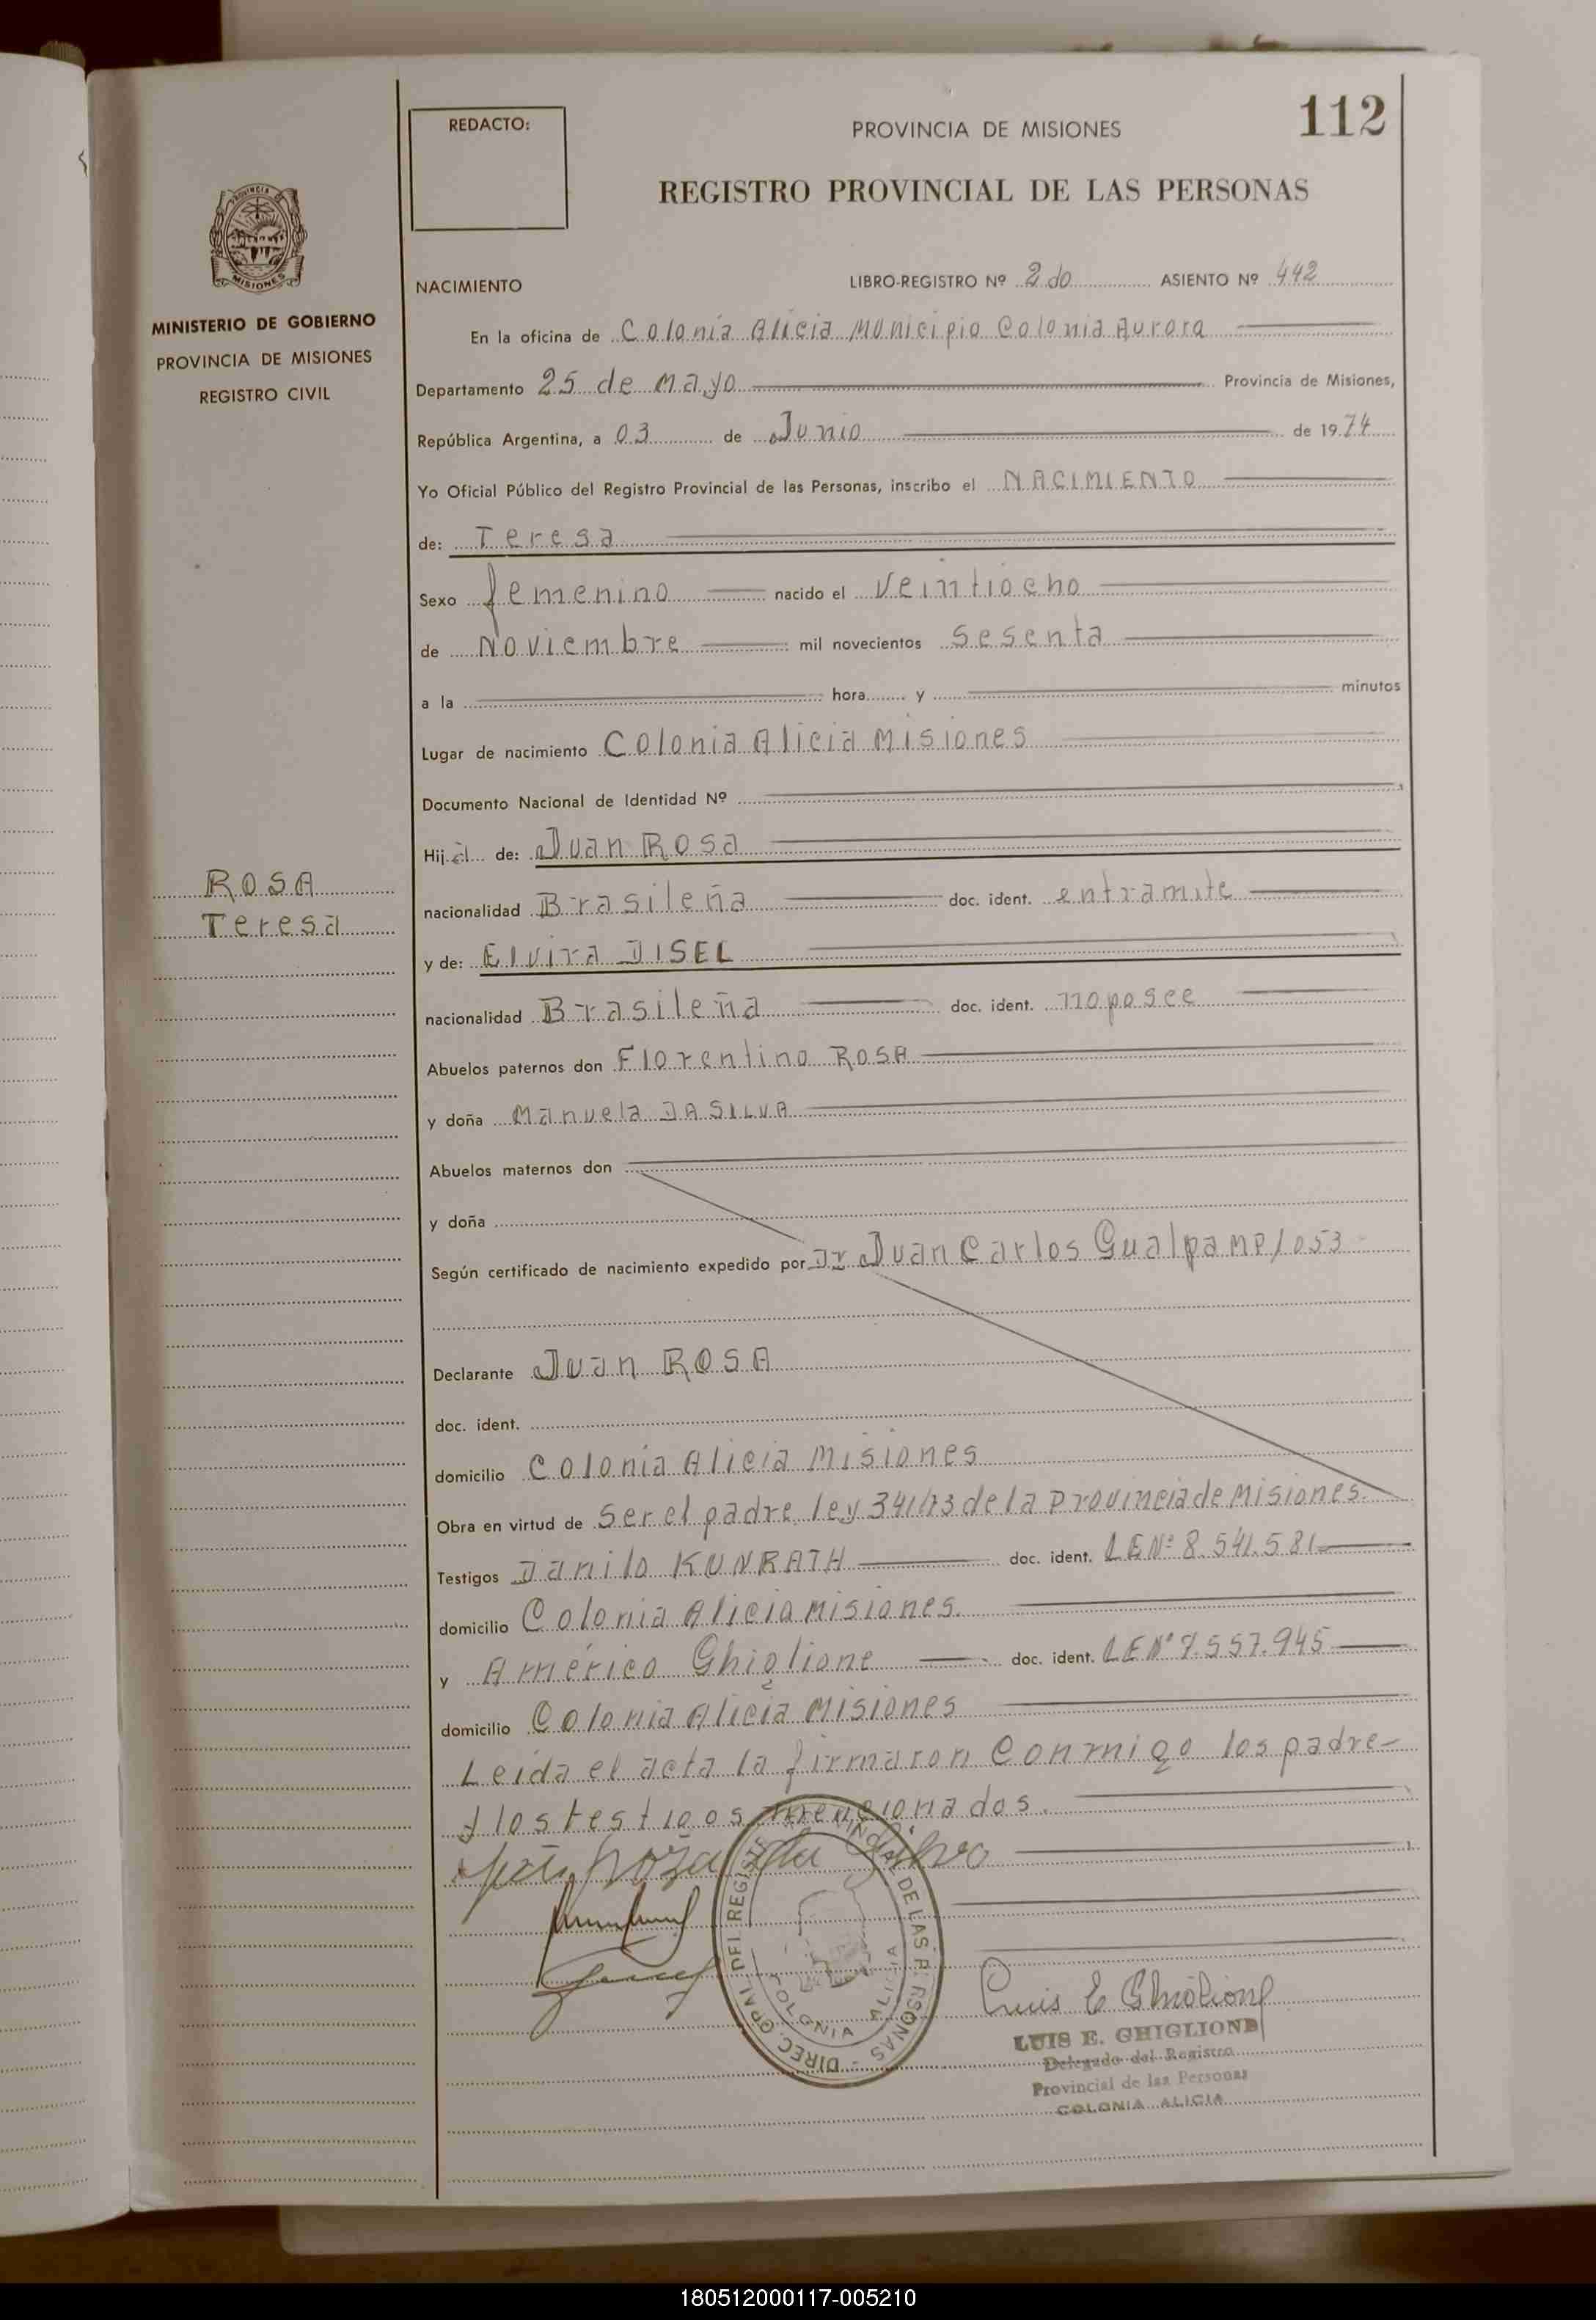 112
REDACTO:
PROVINCIA DE MISIONES
REGISTRO PROVINCIAL DE LAS PERSONAS
PROVINCIA
MISIONES
MINISTERIO DE GOBIERNO
PROVINCIA DE MISIONES
REGISTRO CIVIL
NACIMIENTO LIBRO-REGISTRO Nº 2do ASIENTO Nº 442
En la oficina de Colonia Alicia Municipio Colonia Aurora
Departamento 25 de Mayo Provincia de Misiones,
República Argentina, a 03 de Junio de 1974
Yo Oficial Público del Registro Provincial de las Personas, inscribo el NACIMIENTO
de: Teresa
Sexo femenino nacido el veintiocho
de Noviembre mil novecientos sesenta
a la hora y minutos
Lugar de nacimiento Colonia Alicia Misiones
Documento Nacional de Identidad Nº
Hija de: Juan Rosa
ROSA
Teresa
nacionalidad Brasileña doc. ident. entramite
y de: Elvira DISEL
nacionalidad Brasileña doc. ident. no posee
Abuelos paternos don Florentino ROSA
y doña Manuela DA SILVA
Abuelos maternos don
y doña
Según certificado de nacimiento expedido por Dr Juan Carlos Gualpa MP/053
Declarante Juan ROSA
doc. ident.
domicilio Colonia Alicia Misiones
Obra en virtud de Ser el padre ley 341/73 de la provincia de Misiones.
Testigos Danilo KUNRATH doc. ident. LE Nº 8.541.581
domicilio Colonia Alicia Misiones.
y Américo Ghiglione doc. ident. LE Nº 7.557.945
domicilio Colonia Alicia Misiones
Leída el acta la firmaron conmigo los padre-
y los testigos mencionados.
DIREC. GRAL DEL REGISTRO PROVINCIAL DE LAS PERSONAS
COLONIA ALICIA
Luis E Ghiglione
LUIS E. GHIGLIONE
Delegado del Registro
Provincial de las Personas
COLONIA ALICIA
180512000117-005210